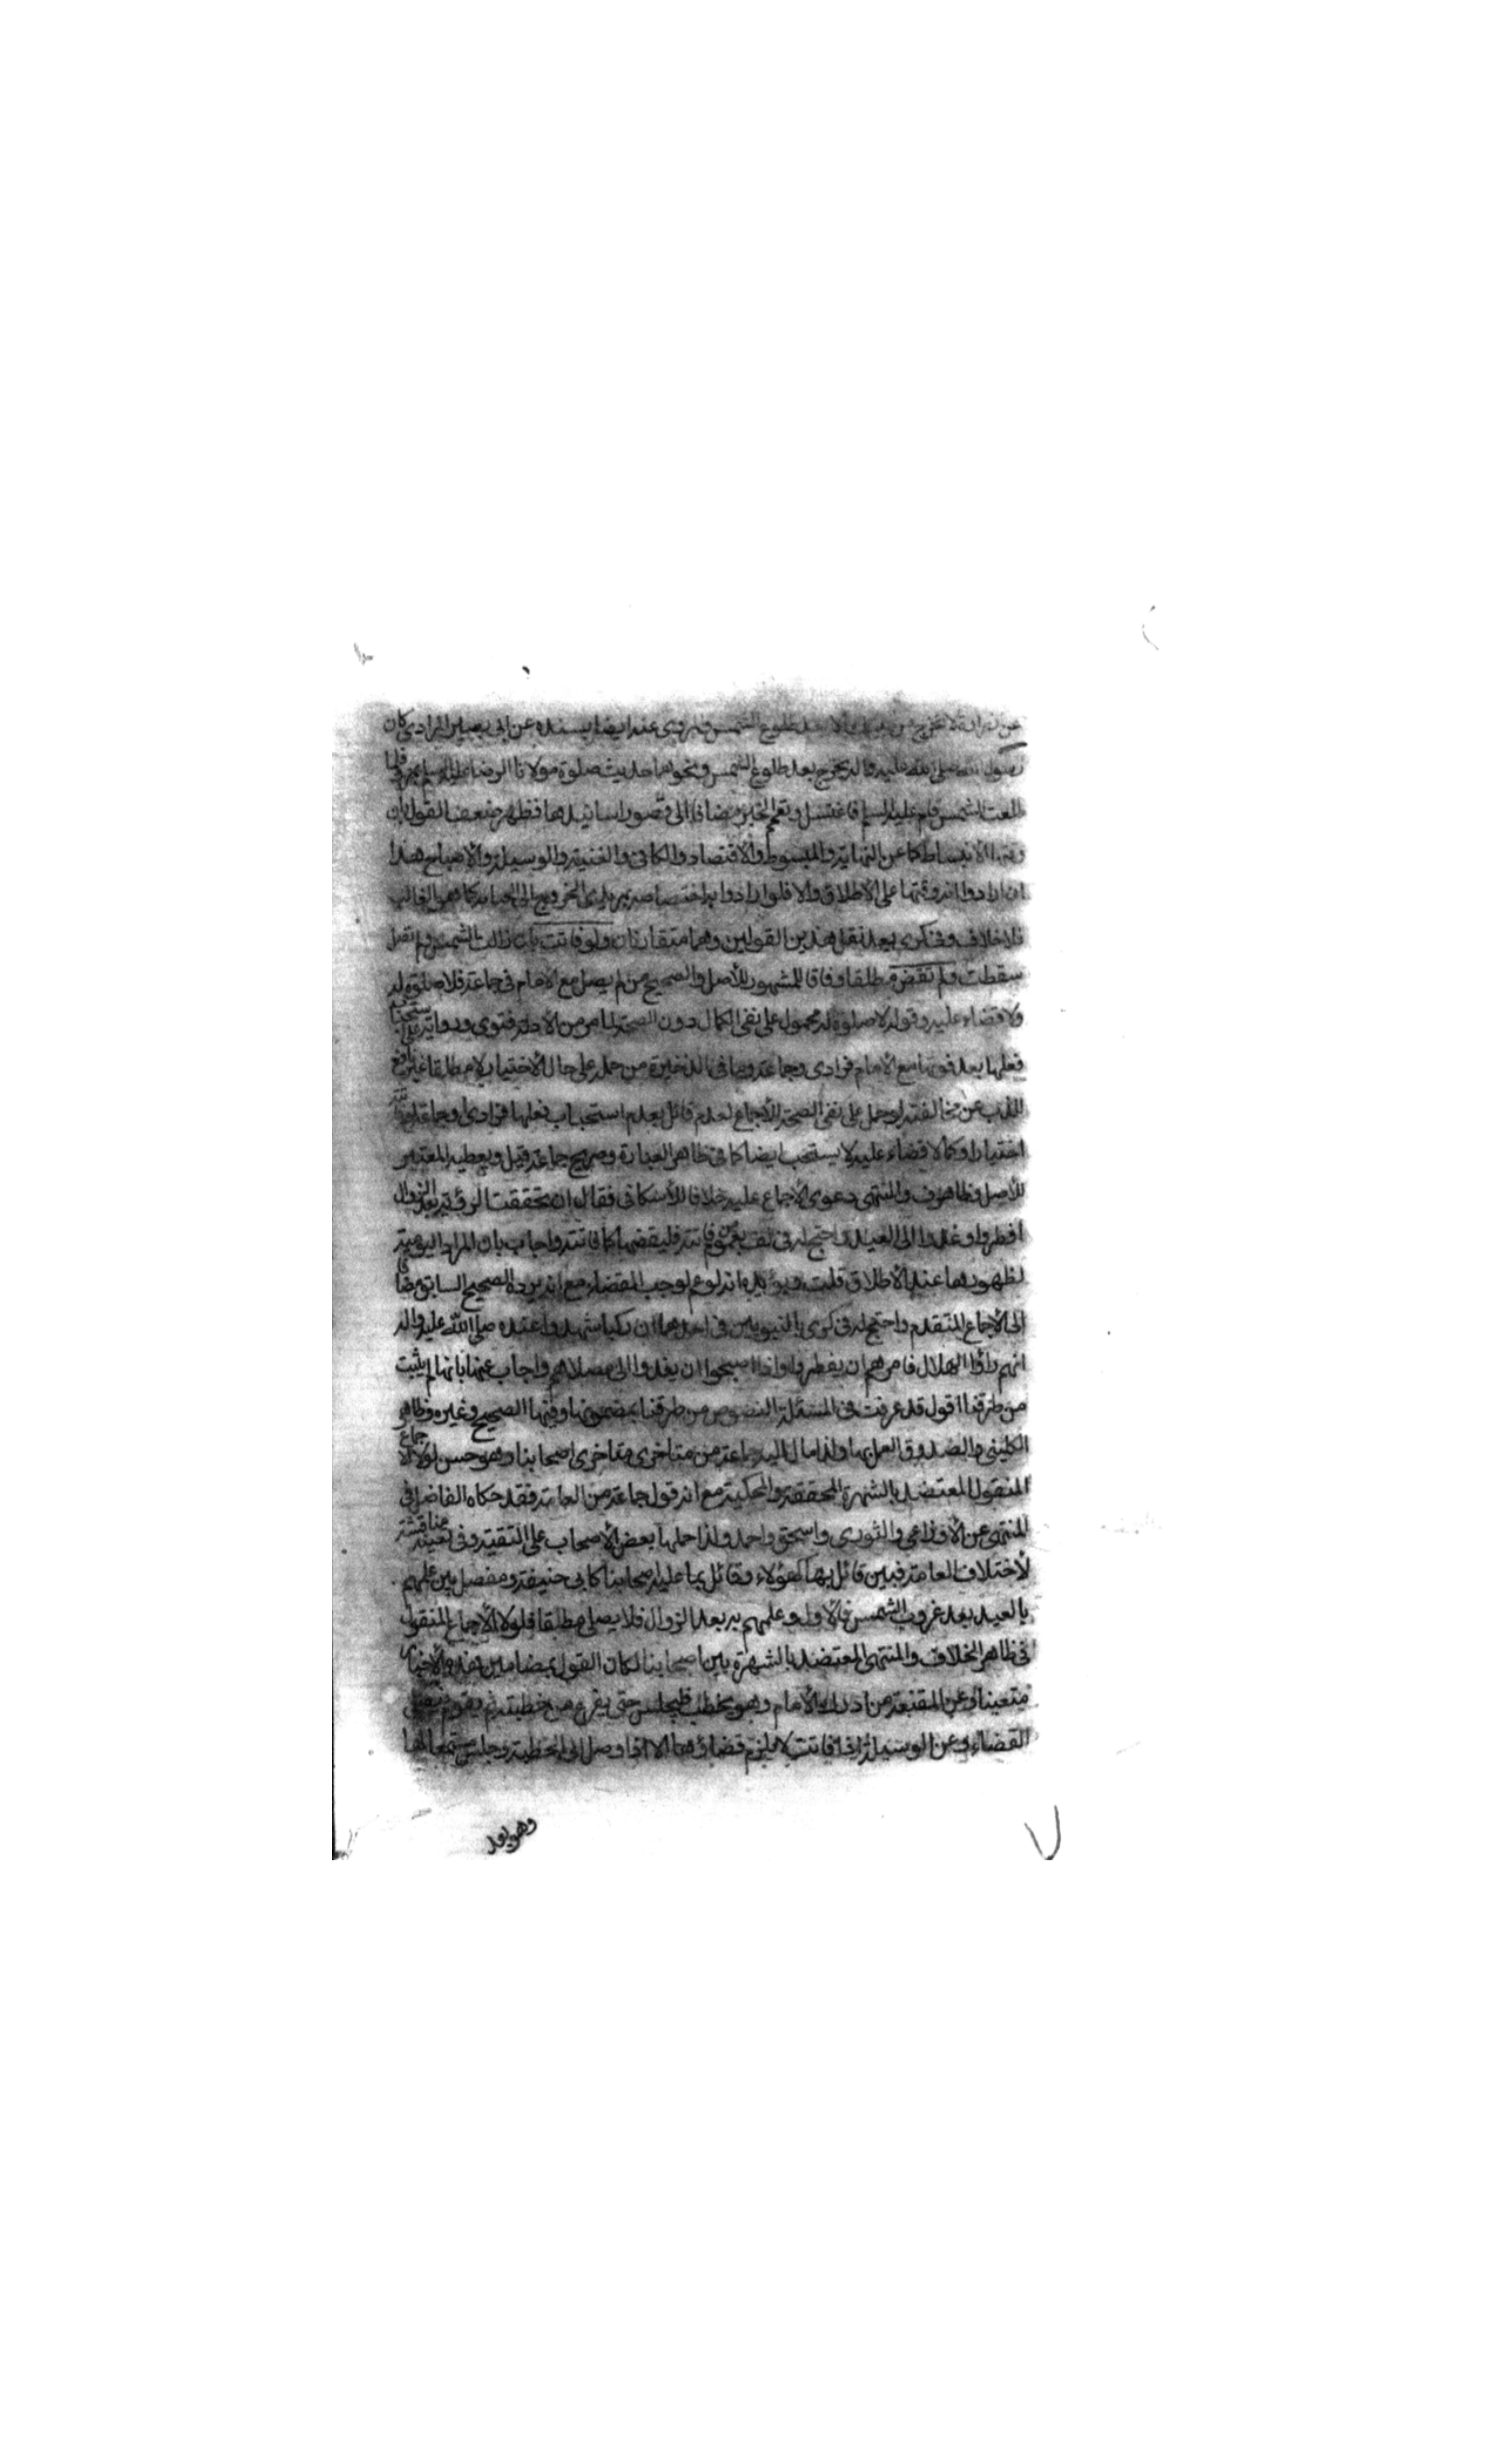 عن زرارة لا تخرج من بيتك الا بعد طلوع الشمس وروى عنه ايضا بسنده عن ابى بصير المرادى كان
رسول الله صلى الله عليه واله يخرج بعد طلوع الشمس ونحوها حديث صلوة مولانا الرضا عليه السلام فلما
طلعت الشمس قام عليه السلم فاغتسل وتعمم الخبر مضافا الى قصور اسانيدها فظهر ضعف القول بان
وقتها الانبساط كما عن النهاية والمبسوط والاقتصاد والكافى والغنية والوسيلة والاصباح هذا
ان ارادوا انه وقتها على الاطلاق والا فلو ارادوا به اختصاصه بمريد الخروج الى الجبانة كما هو الغالب
فلا خلاف وفى كرى بعد نقل هذين القولين وهما متقاربان ولو فاتت بان زالت الشمس ولم تصل
سقطت ولم تقض مطلقا وفاقا للمشهور للأصل والصحيح من لم يصل مع الامام فى جماعة فلا صلوة له
ولا قضاء عليه وقوله لا صلوة له محمول على نفى الكمال دون الصحة لما مر من الادلة فتوى ورواية على استحباب
فعلها بعد فوتها مع الامام فرادى وجماعة وما فى الذخيرة من حمله على حال الاختيار لا مطلقا غير نافع
للذب عن مخالفته لو حمل على نفى الصحة للاجماع لعدم قائل بعدم استحباب فعلها فرادى او جماعة لو فاتته
اختيارا وكما لا قضاء عليه لا يستحب ايضا كما فى ظاهر العبارة وصريح جماعة قيل ويعطيه المعتبر
للأصل وظاهر ف والمنتهى دعوى الاجماع عليه خلافا للأسكافى فقال ان تحققت الرؤية بعد الزوال
افطروا وغدوا الى العيد واحتج له فى لف بعموم من فاتته فليقضها كما فاتته واجاب بان المراد اليومية
لظهورها عند الاطلاق قلت ويؤيده انه لو عم لوجب القضاء مع انه يرده الصحيح السابق مضافا
الى الاجماع المتقدم واحتج له فى كرى بالنبويين فى احدهما ان ركبا شهدوا عنده صلى الله عليه واله
انهم رأوا الهلال فامرهم ان يفطروا واذا اصبحوا ان يغدوا الى مصلاهم واجاب عنها بانها لم يثبت
من طرقنا اقول قد عرفت فى المسئلة النصوص من طرقنا بمضمونها وفيها الصحيح وغيره وظاهر
الكلينى والصدوق العمل بها ولذا مال اليه جماعة من متاخرى متاخرى اصحابنا وهو حسن لولا الاجماع
المنقول المعتضد بالشهرة المحققة والمحكية مع انه قول جماعة من العامة فقد حكاه الفاضل فى
المنتهى عن الاوزاعى والثورى واسحق واحمد ولذا حملها بعض الأصحاب على التقية وفى تعينه مناقشة
لأختلاف العامة فبين قائل بها كهؤلاء وقائل بما عليه اصحابنا كابى حنيفة ومفصل بين علمهم
بالعيد بعد غروب الشمس فالاول وعلمهم به بعد الزوال فلا يصلى مطلقا فلولا الاجماع المنقول
فى ظاهر الخلاف والمنتهى المعتضد بالشهرة بين اصحابنا لكان القول بمضامين هذه الاخبار
متعينا وعن المقنعة من ادرك الأمام وهو يخطب فليجلس حتى يفرغ من خطبته ثم يقوم فيصلى
القضاء وعن الوسيلة اذا فاتت لا يلزم قضاؤها الا اذا وصل الى الخطبة وجلس مستمعا لها
وهو بعد